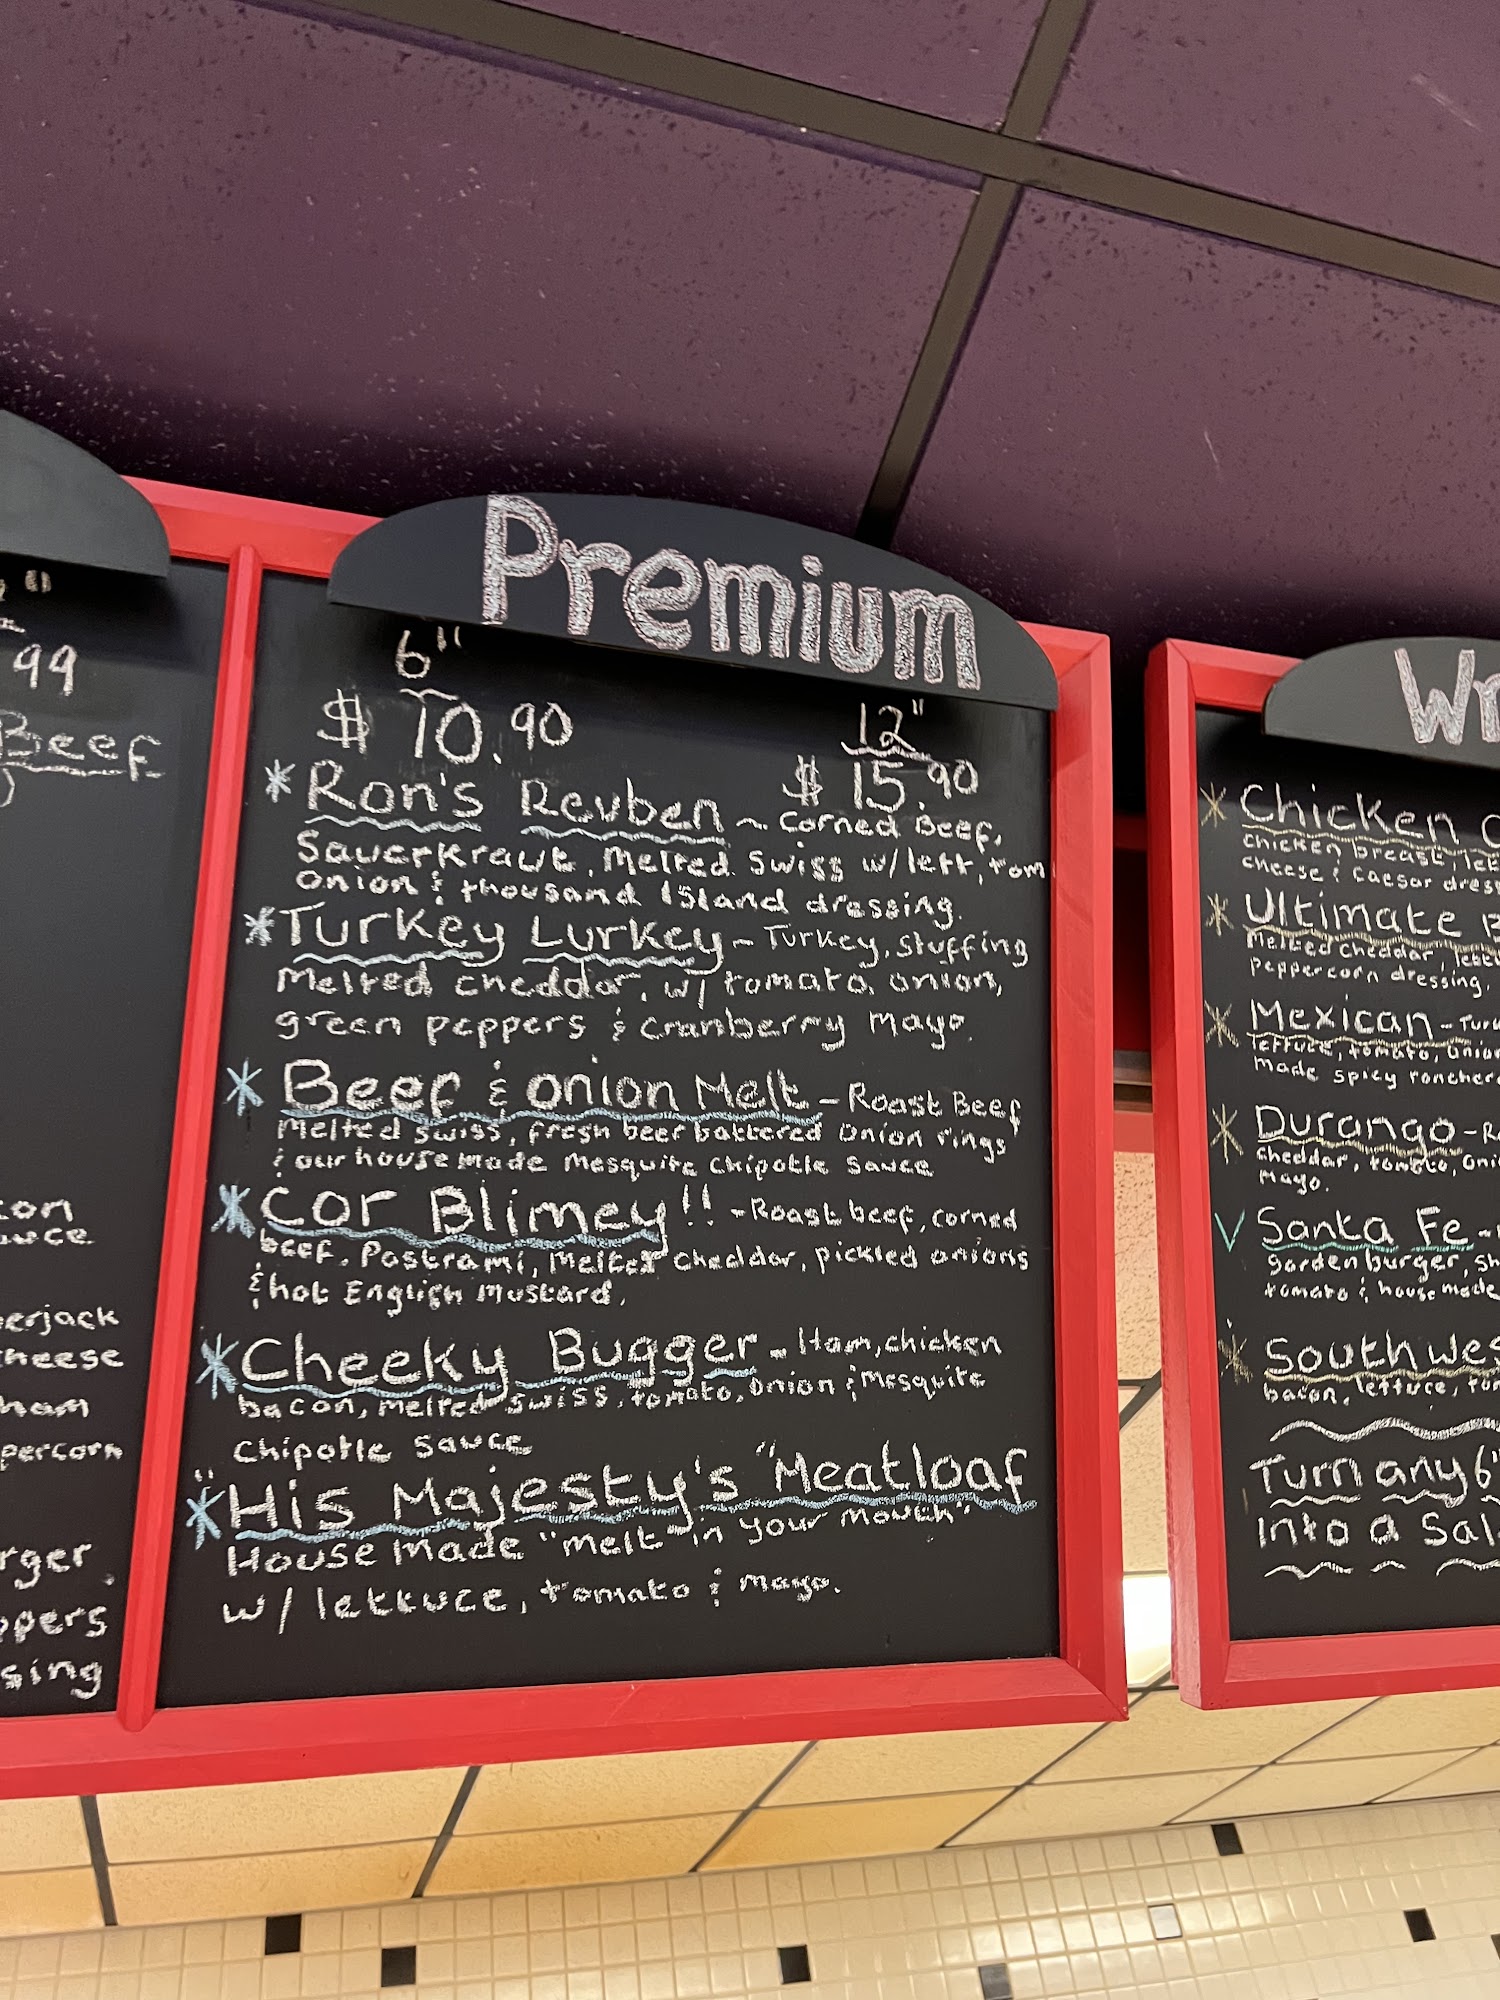 99
Beef
con
erjack
cheese
ham
percorn
rger
ppers
sing
Premium
6" 12"
$ 10.90 $ 15.90
* Ron's Reuben ~ Corned Beef,
Sauerkraut, Melted Swiss w/ lett, tom
onion & thousand Island dressing.
* Turkey Lurkey - Turkey, stuffing
Melted cheddar, w/ tomato, onion,
green peppers & cranberry mayo.
* Beef & onion Melt - Roast Beef
Melted swiss, fresh beer battered onion rings
& our house made mesquite chipotle sauce
* Cor Blimey!! - Roast beef, corned
beef, Pastrami, Melted cheddar, pickled onions
& hot English mustard.
* Cheeky Bugger - Ham, chicken
bacon, melted swiss, tomato, onion & Mesquite
Chipotle sauce
* "His Majesty's "Meatloaf
House Made "melt in your mouth"
w/ lettuce, tomato & mayo.
Wr
* Chicken C
chicken breast, lett
cheese & caesar dress
* Ultimate B
Melted cheddar, lettu
peppercorn dressing.
* Mexican - Turk
lettuce, tomato, onion
made spicy ranchero
* Durango - Ro
cheddar, tomato, oni
mayo.
V Santa Fe -
gardenburger, sh
tomato & house made
* Southwes
bacon, lettuce, tom
Turn any 6"
Into a Sal